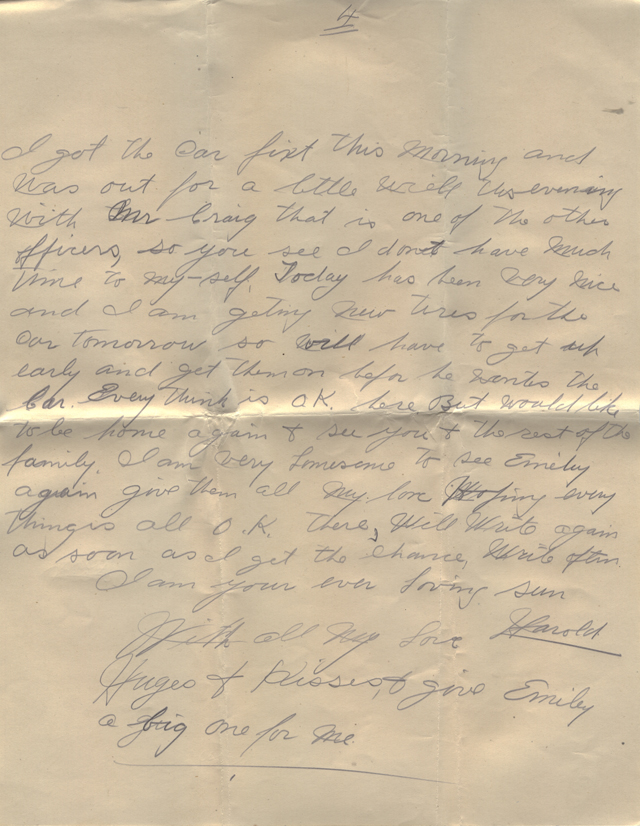 4
I got the car fixt this morning and
was out for a little while this evening
with Mr Craig that is one of the other
officers, so you see I don't have much
time to my-self. Today has been very nice
and I am geting new tires for the
car tomorrow so will have to get up
early and get them on befor he wantes the
Car. Every think is O.K. here But would like
to be home again & see you & the rest of the
family. I am very lonesome to see Emiley
again give them all my love Hoping every
thing is all O.K. there, Will Write again
as soon as I get the chance, Write often
I am your ever loving sun
With all my love Harold
Huges & Kisses, & give Emiley
a big one for me